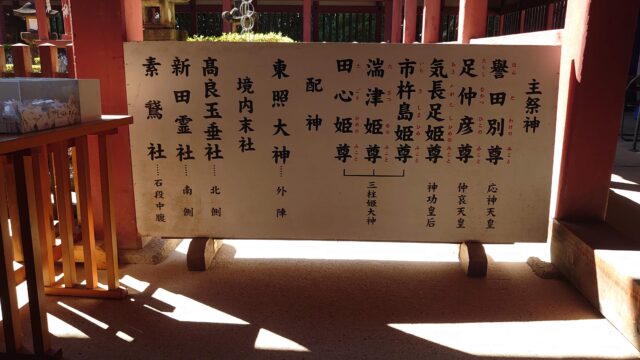 主祭神
譽田別尊 応神天皇
足仲彦尊 仲哀天皇
気長足姫尊 神功皇后
市杵島姫尊
湍津姫尊
田心姫尊
三柱姫大神
配神
東照大神……外陣
境内末社
高良玉垂社……北側
新田霊社……南側
素鵞社……石段中腹